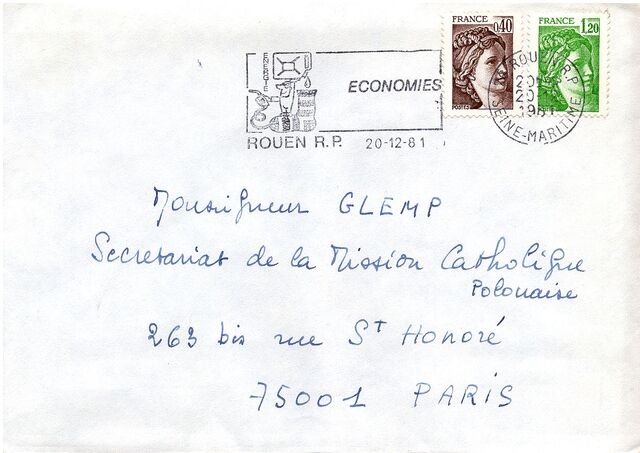 FRANCE 0,40
FRANCE 1,20
ENERGIE
ECONOMIES
ROUEN R.P. 20-12-81
ROUEN R.P.
20
1981
SEINE-MARITIME
Monseigneur GLEMP
Secretariat de la Mission Catholique
Polonaise
263 bis rue St Honoré
75001 PARIS